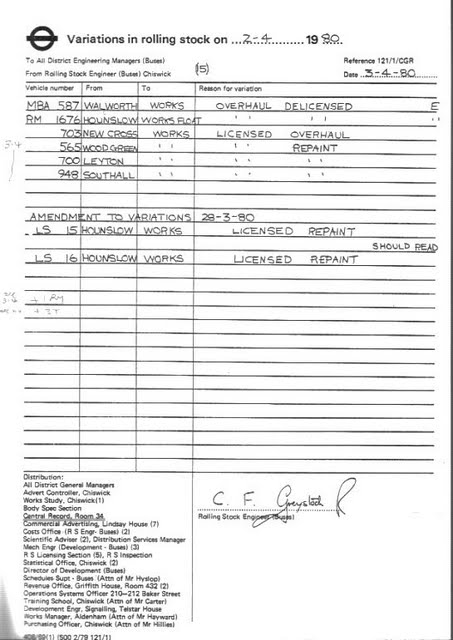 Variations in rolling stock on 2-4 1980
To All District Engineering Managers (Buses) Reference 121/1/CGR
From Rolling Stock Engineer (Buses) Chiswick (15) Date 3-4-80
Vehicle number From To Reason for variation
MBA 587 WALWORTH WORKS OVERHAUL DELICENSED E
RM 1676 HOUNSLOW WORKS FLOAT " " "
703 NEW CROSS WORKS LICENSED OVERHAUL
3-4 565 WOOD GREEN " " REPAINT
700 LEYTON " " " "
948 SOUTHALL " " " "
AMENDMENT TO VARIATIONS 28-3-80
LS 15 HOUNSLOW WORKS LICENSED REPAINT
SHOULD READ
LS 16 HOUNSLOW WORKS LICENSED REPAINT
3-4 +1 RM
+3T
Distribution:
All District General Managers
Advert Controller, Chiswick
Works Study, Chiswick(1)
Body Spec Section
Central Record, Room 34,
Commercial Advertising, Lindsay House (7)
Costs Office (R S Engr- Buses) (2)
Scientific Adviser (2), Distribution Services Manager
Mech Engr (Development - Buses) (3)
R S Licensing Section (5), R S Inspection
Statistical Office, Chiswick (2)
Director of Development (Buses)
Schedules Supt - Buses (Attn of Mr Hyslop)
Revenue Office, Griffith House, Room 432 (2)
Operations Systems Officer 210—212 Baker Street
Training School, Chiswick (Attn of Mr Carter)
Development Engr, Signalling, Telstar House
Works Manager, Aldenham (Attn of Mr Hayward)
Purchasing Officer, Chiswick (Attn of Mr Hillies)
C. F.
Rolling Stock Engineer (Buses)
(500 2/79 121/1)